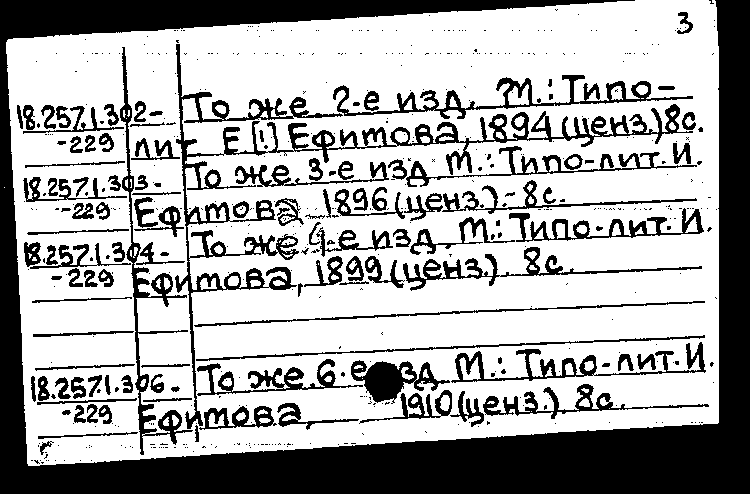 3
18.257.1.302- То же. 2-е изд. М.: Типо-
-229 лит. Е.[!] Ефимова, 1894 (ценз.) 8с.
18.257.1.303- То же. 3-е изд. М.: Типо-лит. И.
-229 Ефимова 1896 (ценз.).- 8с.
18.257.1.304- То же 4-е изд. М.: Типо-лит. И.
-229 Ефимова, 1899 (ценз.). 8с.
18.257.1.306- То же. 6-е изд М.: Типо-лит. И.
-229 Ефимова, 1910 (ценз.). 8с.